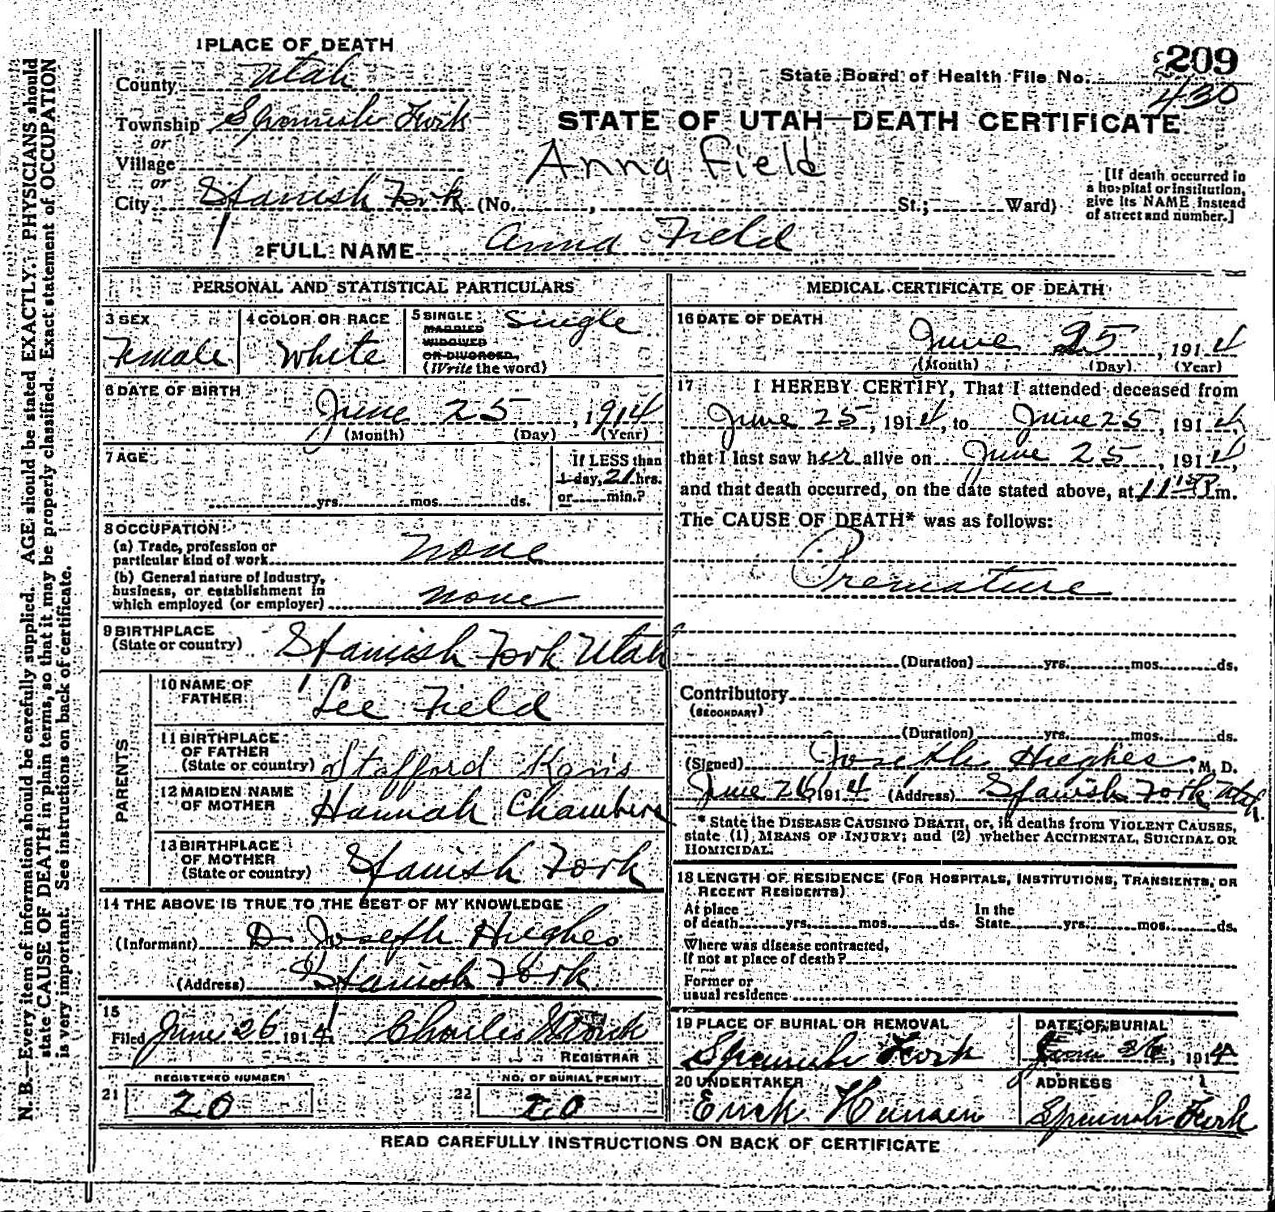 1 PLACE OF DEATH
County Utah
Township Spanish Fork
or
Village
or
City Spanish Fork (No. , St.; Ward)
State Board of Health File No. 209
430
STATE OF UTAH—DEATH CERTIFICATE
Anna Field
[If death occurred in
a hospital or institution,
give its NAME instead
of street and number.]
2 FULL NAME Anna Field
PERSONAL AND STATISTICAL PARTICULARS
3 SEX
Female
4 COLOR OR RACE
White
5 SINGLE
MARRIED
WIDOWED
OR DIVORCED.
(Write the word)
Single
6 DATE OF BIRTH
June 25, 1914
(Month) (Day) (Year)
7 AGE
yrs. mos. ds.
If LESS than
1 day, 21 hrs.
or min.?
8 OCCUPATION
(a) Trade, profession or
particular kind of work none
(b) General nature of industry,
business, or establishment in
which employed (or employer) none
9 BIRTHPLACE
(State or country) Spanish Fork Utah
PARENTS
10 NAME OF
FATHER Lee Field
11 BIRTHPLACE
OF FATHER
(State or country) Stafford Kans
12 MAIDEN NAME
OF MOTHER Hannah Chambers
13 BIRTHPLACE
OF MOTHER
(State or country) Spanish Fork
14 THE ABOVE IS TRUE TO THE BEST OF MY KNOWLEDGE
(Informant) Dr Joseph Hughes
(Address) Spanish Fork
15
Filed June 26 1914 Charles
REGISTRAR
21 REGISTERED NUMBER
20
22 NO. OF BURIAL PERMIT
20
MEDICAL CERTIFICATE OF DEATH
16 DATE OF DEATH
June 25, 1914
(Month) (Day) (Year)
17 I HEREBY CERTIFY, That I attended deceased from
June 25, 1914, to June 25, 1914
that I last saw her alive on June 25, 1914,
and that death occurred, on the date stated above, at 11 P m.
The CAUSE OF DEATH* was as follows:
Premature
(Duration) yrs. mos. ds.
Contributory
(SECONDARY)
(Duration) yrs. mos. ds.
(Signed) Joseph Hughes, M. D.
June 26, 1914 (Address) Spanish Fork Utah
* State the DISEASE CAUSING DEATH, or, in deaths from VIOLENT CAUSES,
state (1) MEANS OF INJURY; and (2) whether ACCIDENTAL, SUICIDAL OR
HOMICIDAL.
18 LENGTH OF RESIDENCE (FOR HOSPITALS, INSTITUTIONS, TRANSIENTS, OR
RECENT RESIDENTS)
At place
of death yrs. mos. ds.
In the
State yrs. mos. ds.
Where was disease contracted,
If not at place of death?
Former or
usual residence
19 PLACE OF BURIAL OR REMOVAL
Spanish Fork
DATE OF BURIAL
June 26, 1914
20 UNDERTAKER
Erick Hansen
ADDRESS
Spanish Fork
READ CAREFULLY INSTRUCTIONS ON BACK OF CERTIFICATE
N. B.—Every item of information should be carefully supplied. AGE should be stated EXACTLY. PHYSICIANS should
state CAUSE OF DEATH in plain terms, so that it may be properly classified. Exact statement of OCCUPATION
is very important. See instructions on back of certificate.